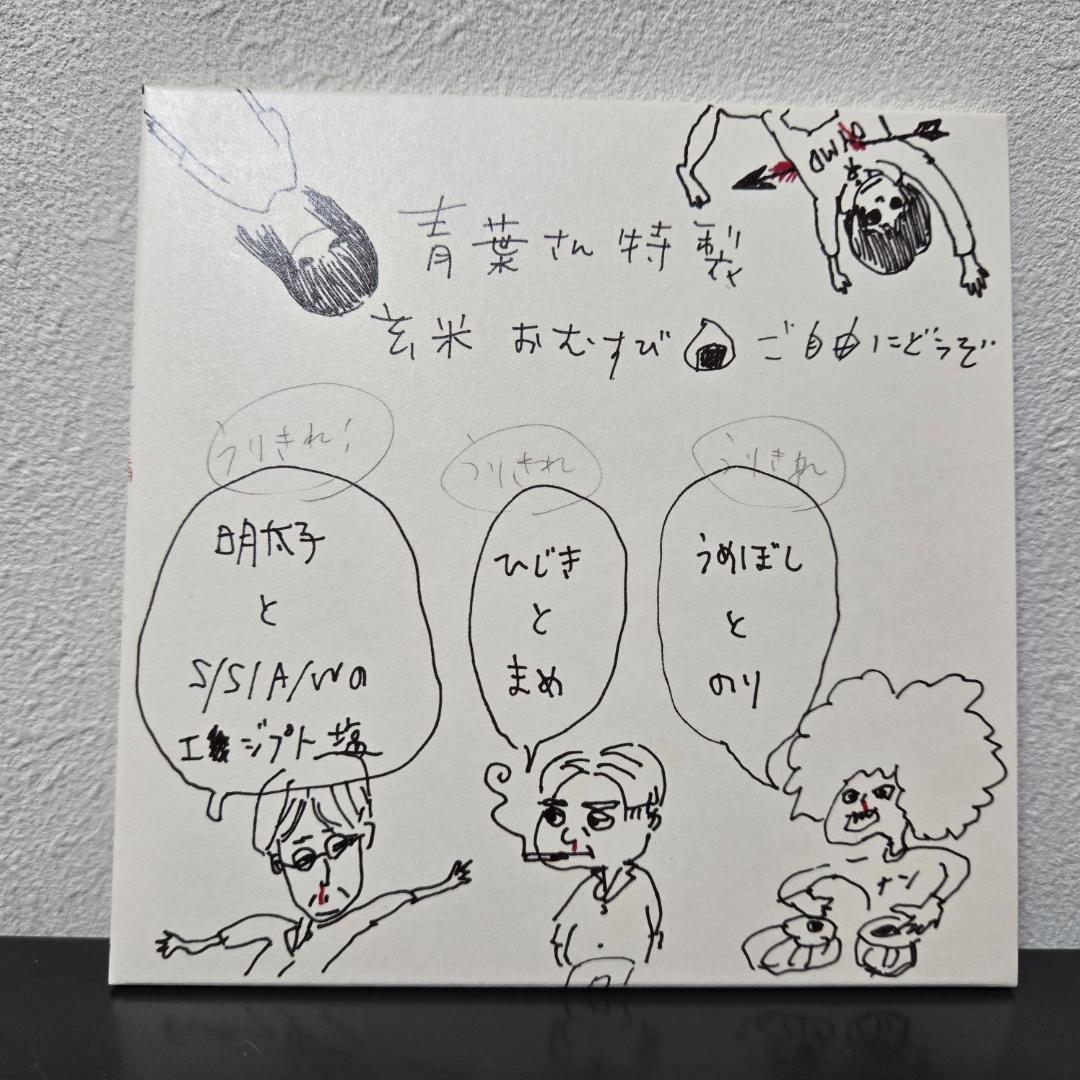 青葉さん特製
玄米おむすび🍙ご自由にどうぞ
うりきれ!
うりきれ
うりきれ
明太子
と
S/S/A/Wの
エジプト塩
ひじき
と
まめ
うめぼし
と
のり